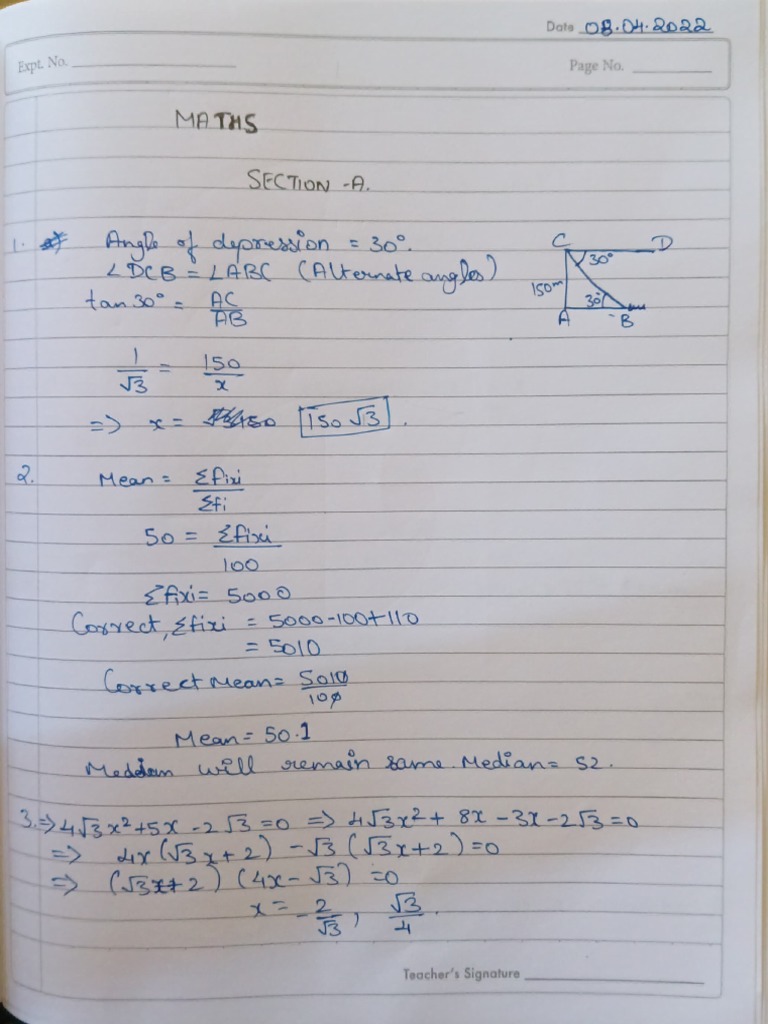 Date 08.04.2022
Expt. No.
Page No.
MATHS
SECTION -A.
1. Angle of depression = 30°.
∠DCB = ∠ABC (Alternate angles)
tan 30° = AC/AB
C D
30°
150m
30°
A B
1/√3 = 150/x
=> x = 150√3.
2. Mean = Σfixi/Σfi
50 = Σfixi/100
Σfixi = 5000
Correct, Σfixi = 5000-100+110
= 5010
Correct Mean = 5010/100
Mean = 50.1
Median will remain same. Median = 52.
3. => 4√3x²+5x -2√3=0 => 4√3x² + 8x - 3x - 2√3=0
=> 4x(√3x+2) -√3(√3x+2)=0
=> (√3x+2) (4x-√3)=0
x = -2/√3, √3/4.
Teacher's Signature